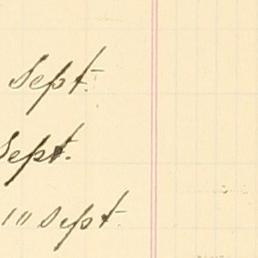 Sept.
Sept.
10 Sept.